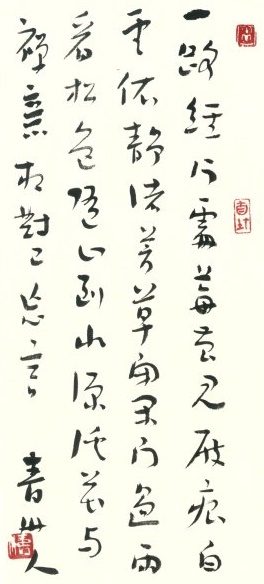 一路經行處莓苔見屐痕白
雲依静渚芳草閉閑門過雨
看松色隨山到水源溪花與
禪意相對已忘言
青州人